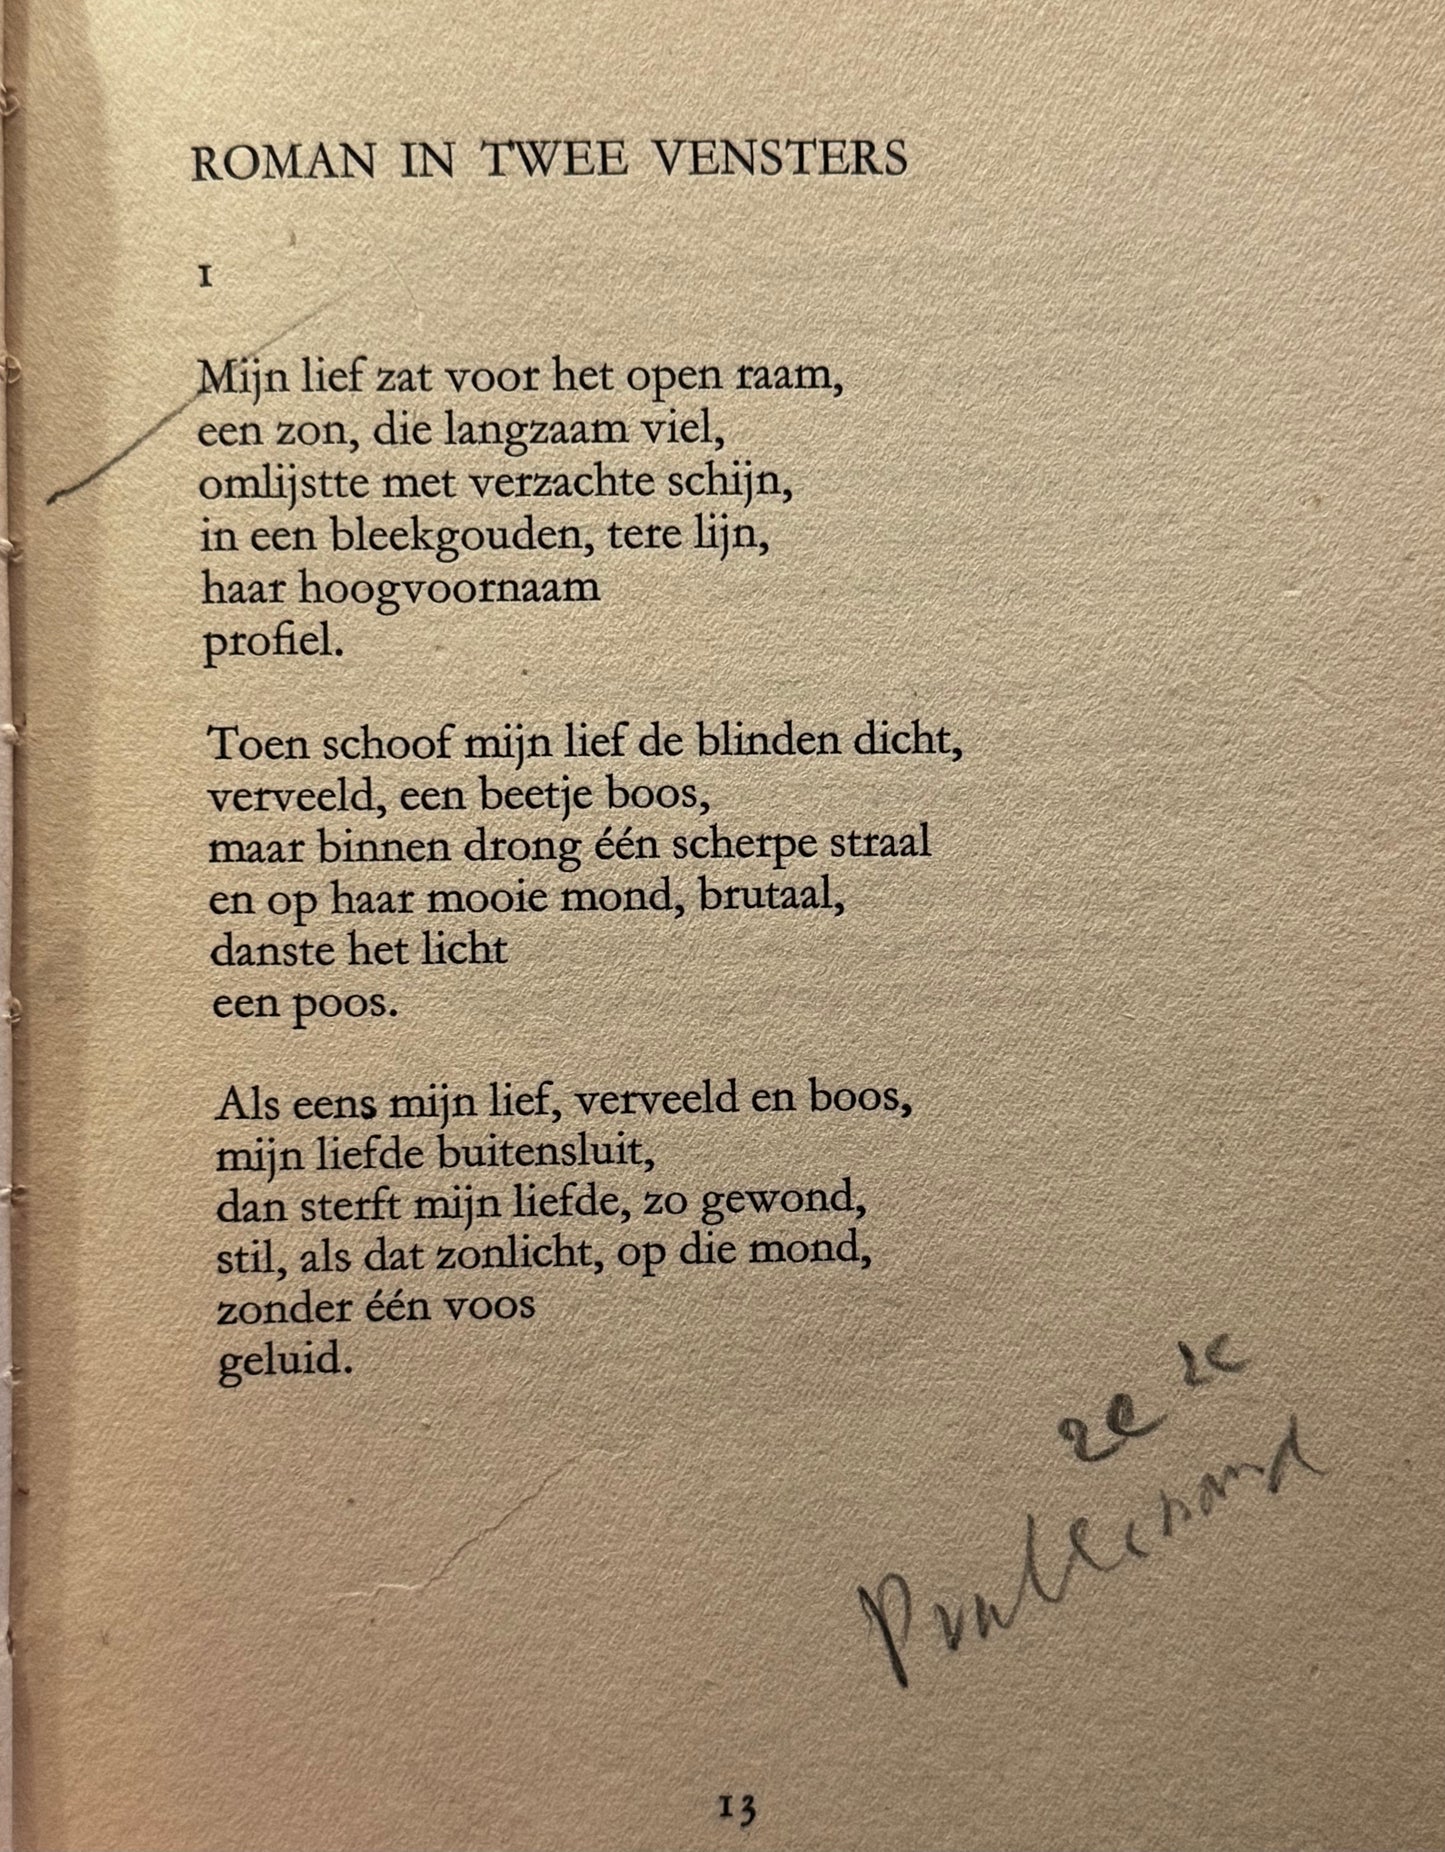 ROMAN IN TWEE VENSTERS
1
Mijn lief zat voor het open raam,
een zon, die langzaam viel,
omlijstte met verzachte schijn,
in een bleekgouden, tere lijn,
haar hoogvoornaam
profiel.
Toen schoof mijn lief de blinden dicht,
verveeld, een beetje boos,
maar binnen drong één scherpe straal
en op haar mooie mond, brutaal,
danste het licht
een poos.
Als eens mijn lief, verveeld en boos,
mijn liefde buitensluit,
dan sterft mijn liefde, zo gewond,
stil, als dat zonlicht, op die mond,
zonder één voos
geluid.
2e 2e
13